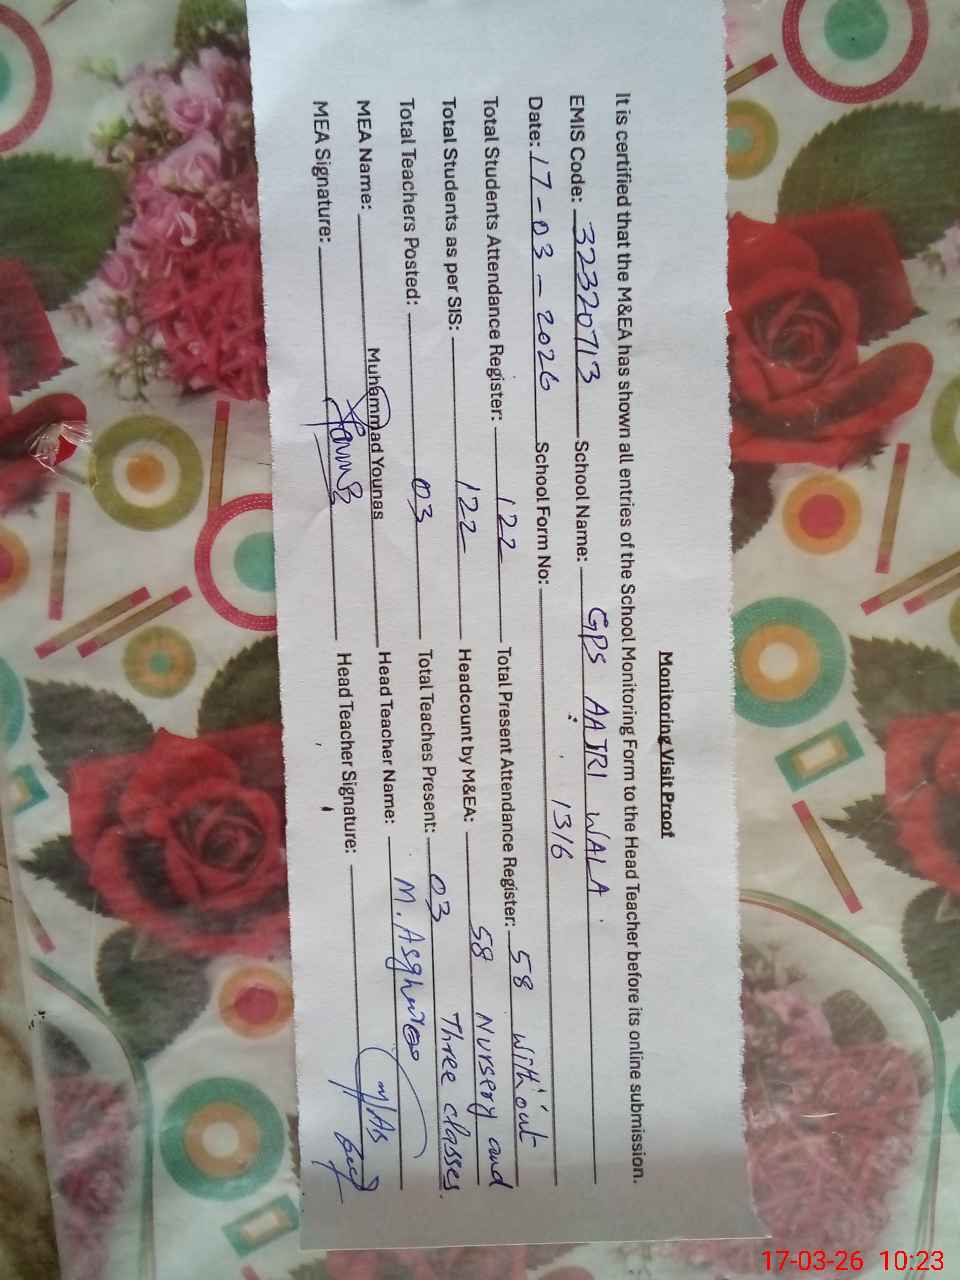 Monitoring Visit Proof
It is certified that the M&EA has shown all entries of the School Monitoring Form to the Head Teacher before its online submission.
EMIS Code: 32320713 School Name: GPS AATRI WALA
Date: 17-03-2026 School Form No: 1316
Total Students Attendance Register: 122 Total Present Attendance Register: 58 without
Total Students as per SIS: 122 Headcount by M&EA: 58 Nursery and
Total Teachers Posted: 03 Total Teaches Present: 03 Three classes.
MEA Name: Muhammad Younas Head Teacher Name: M. Asghar
MEA Signature: Younas Head Teacher Signature:
17-03-26 10:23